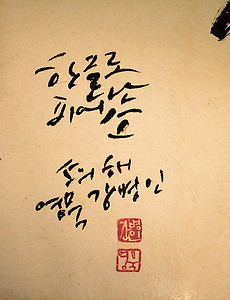 한글로
피어난
소의해
영묵 강병인